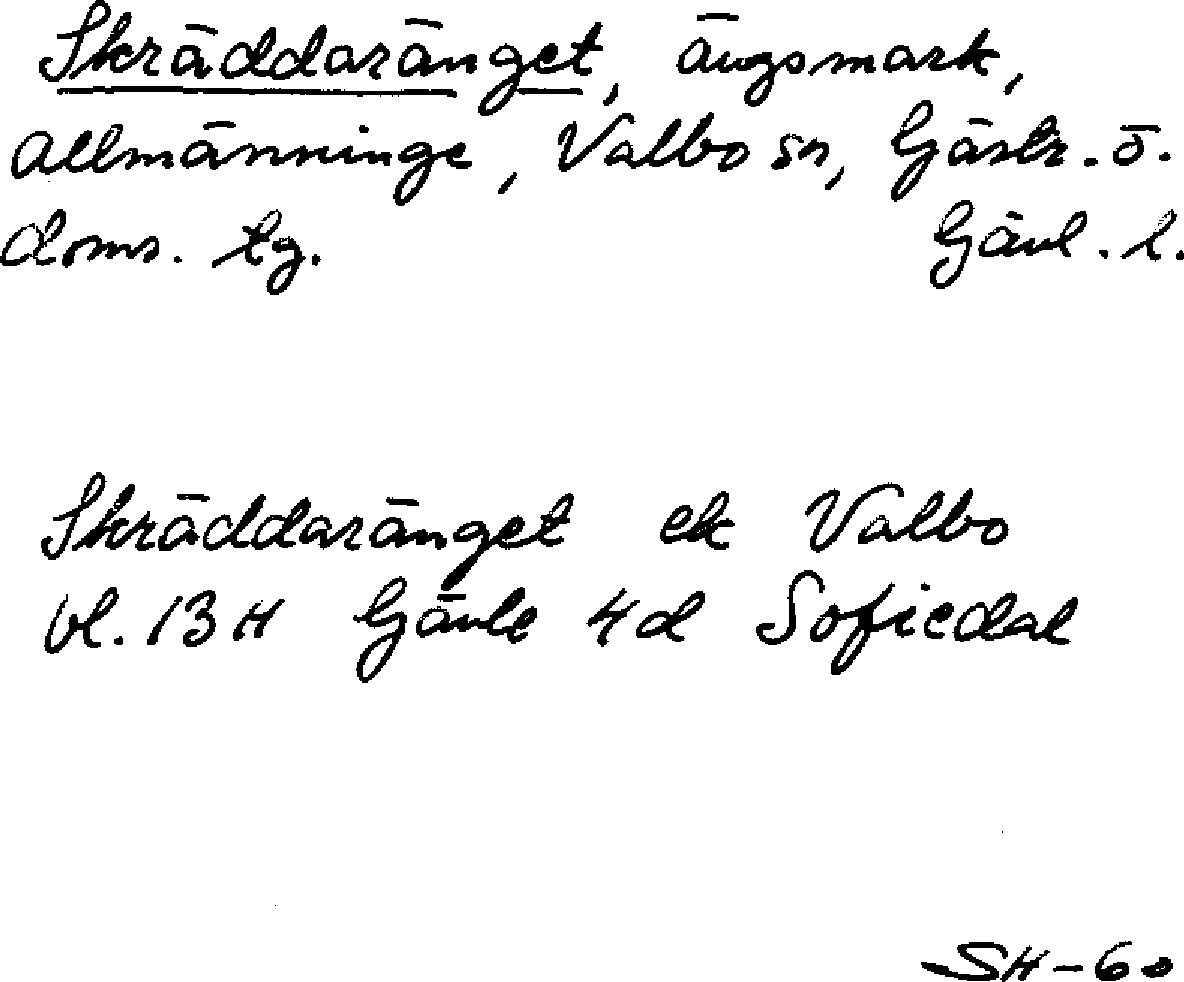 Skräddaränget, ängsmark,
Allmänninge, Valbo sn, Gästr. ö.
doms. tg. Gävl. l.
Skräddaränget ek Valbo
bl. 13 H Gävle 4d Sofiedal
SH-60